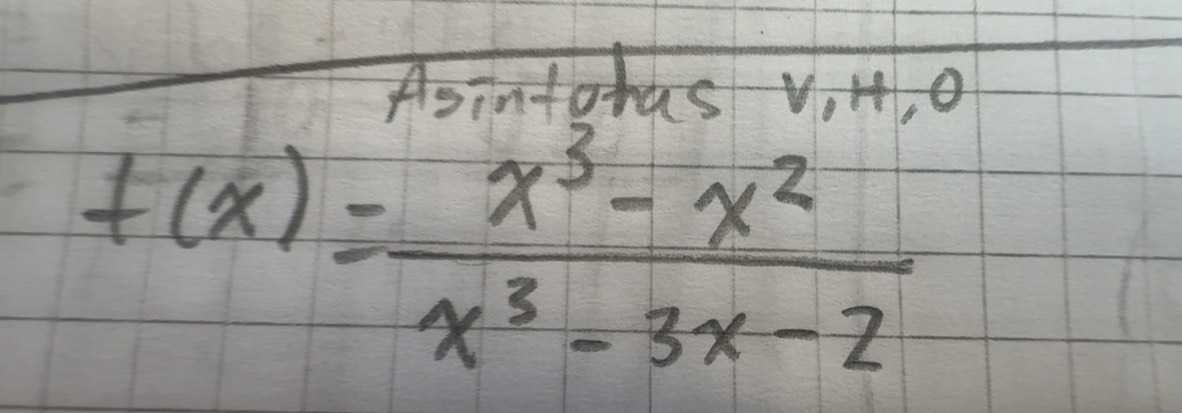 Asintotas V, H, O
f(x) = x³ - x² / x³ - 3x - 2